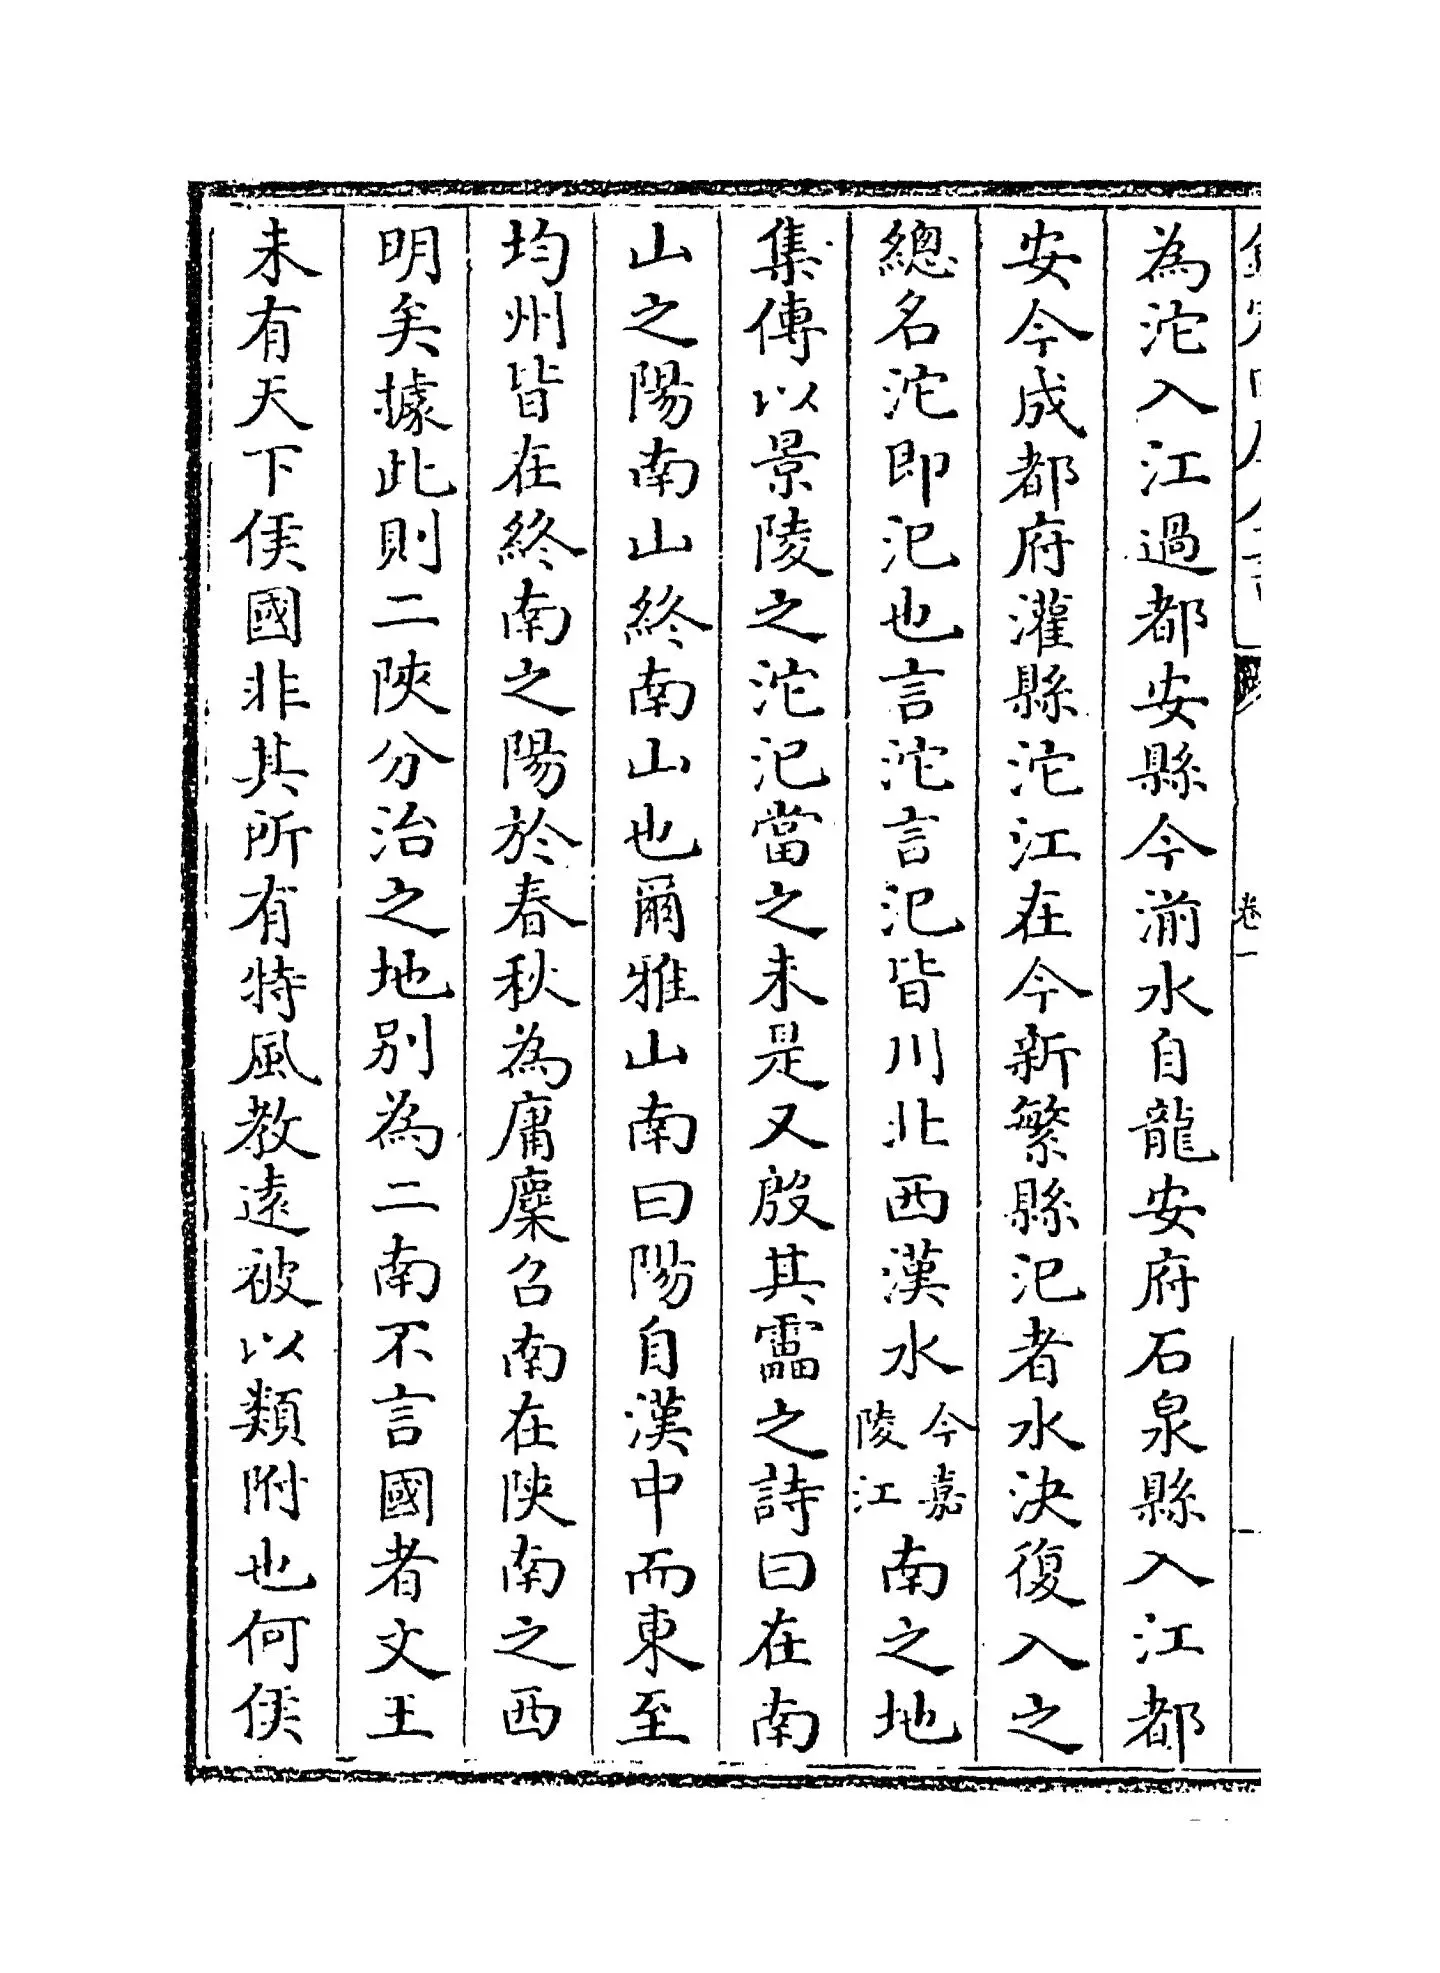 為沱入江過都安縣今湔水自龍安府石泉縣入江都
安今成都府灌縣沱江在今新繁縣汜者水決復入之
總名沱即汜也言沱言汜皆川北西漢水今嘉陵江南之地
集傳以景陵之沱汜當之未是又殷其靁之詩曰在南
山之陽南山終南山也爾雅山南曰陽自漢中而東至
均州皆在終南之陽於春秋為庸麇召南在陜南之西
明矣據此則二陜分治之地別為二南不言國者文王
未有天下侯國非其所有特風教遠被以類附也何侯
卷一